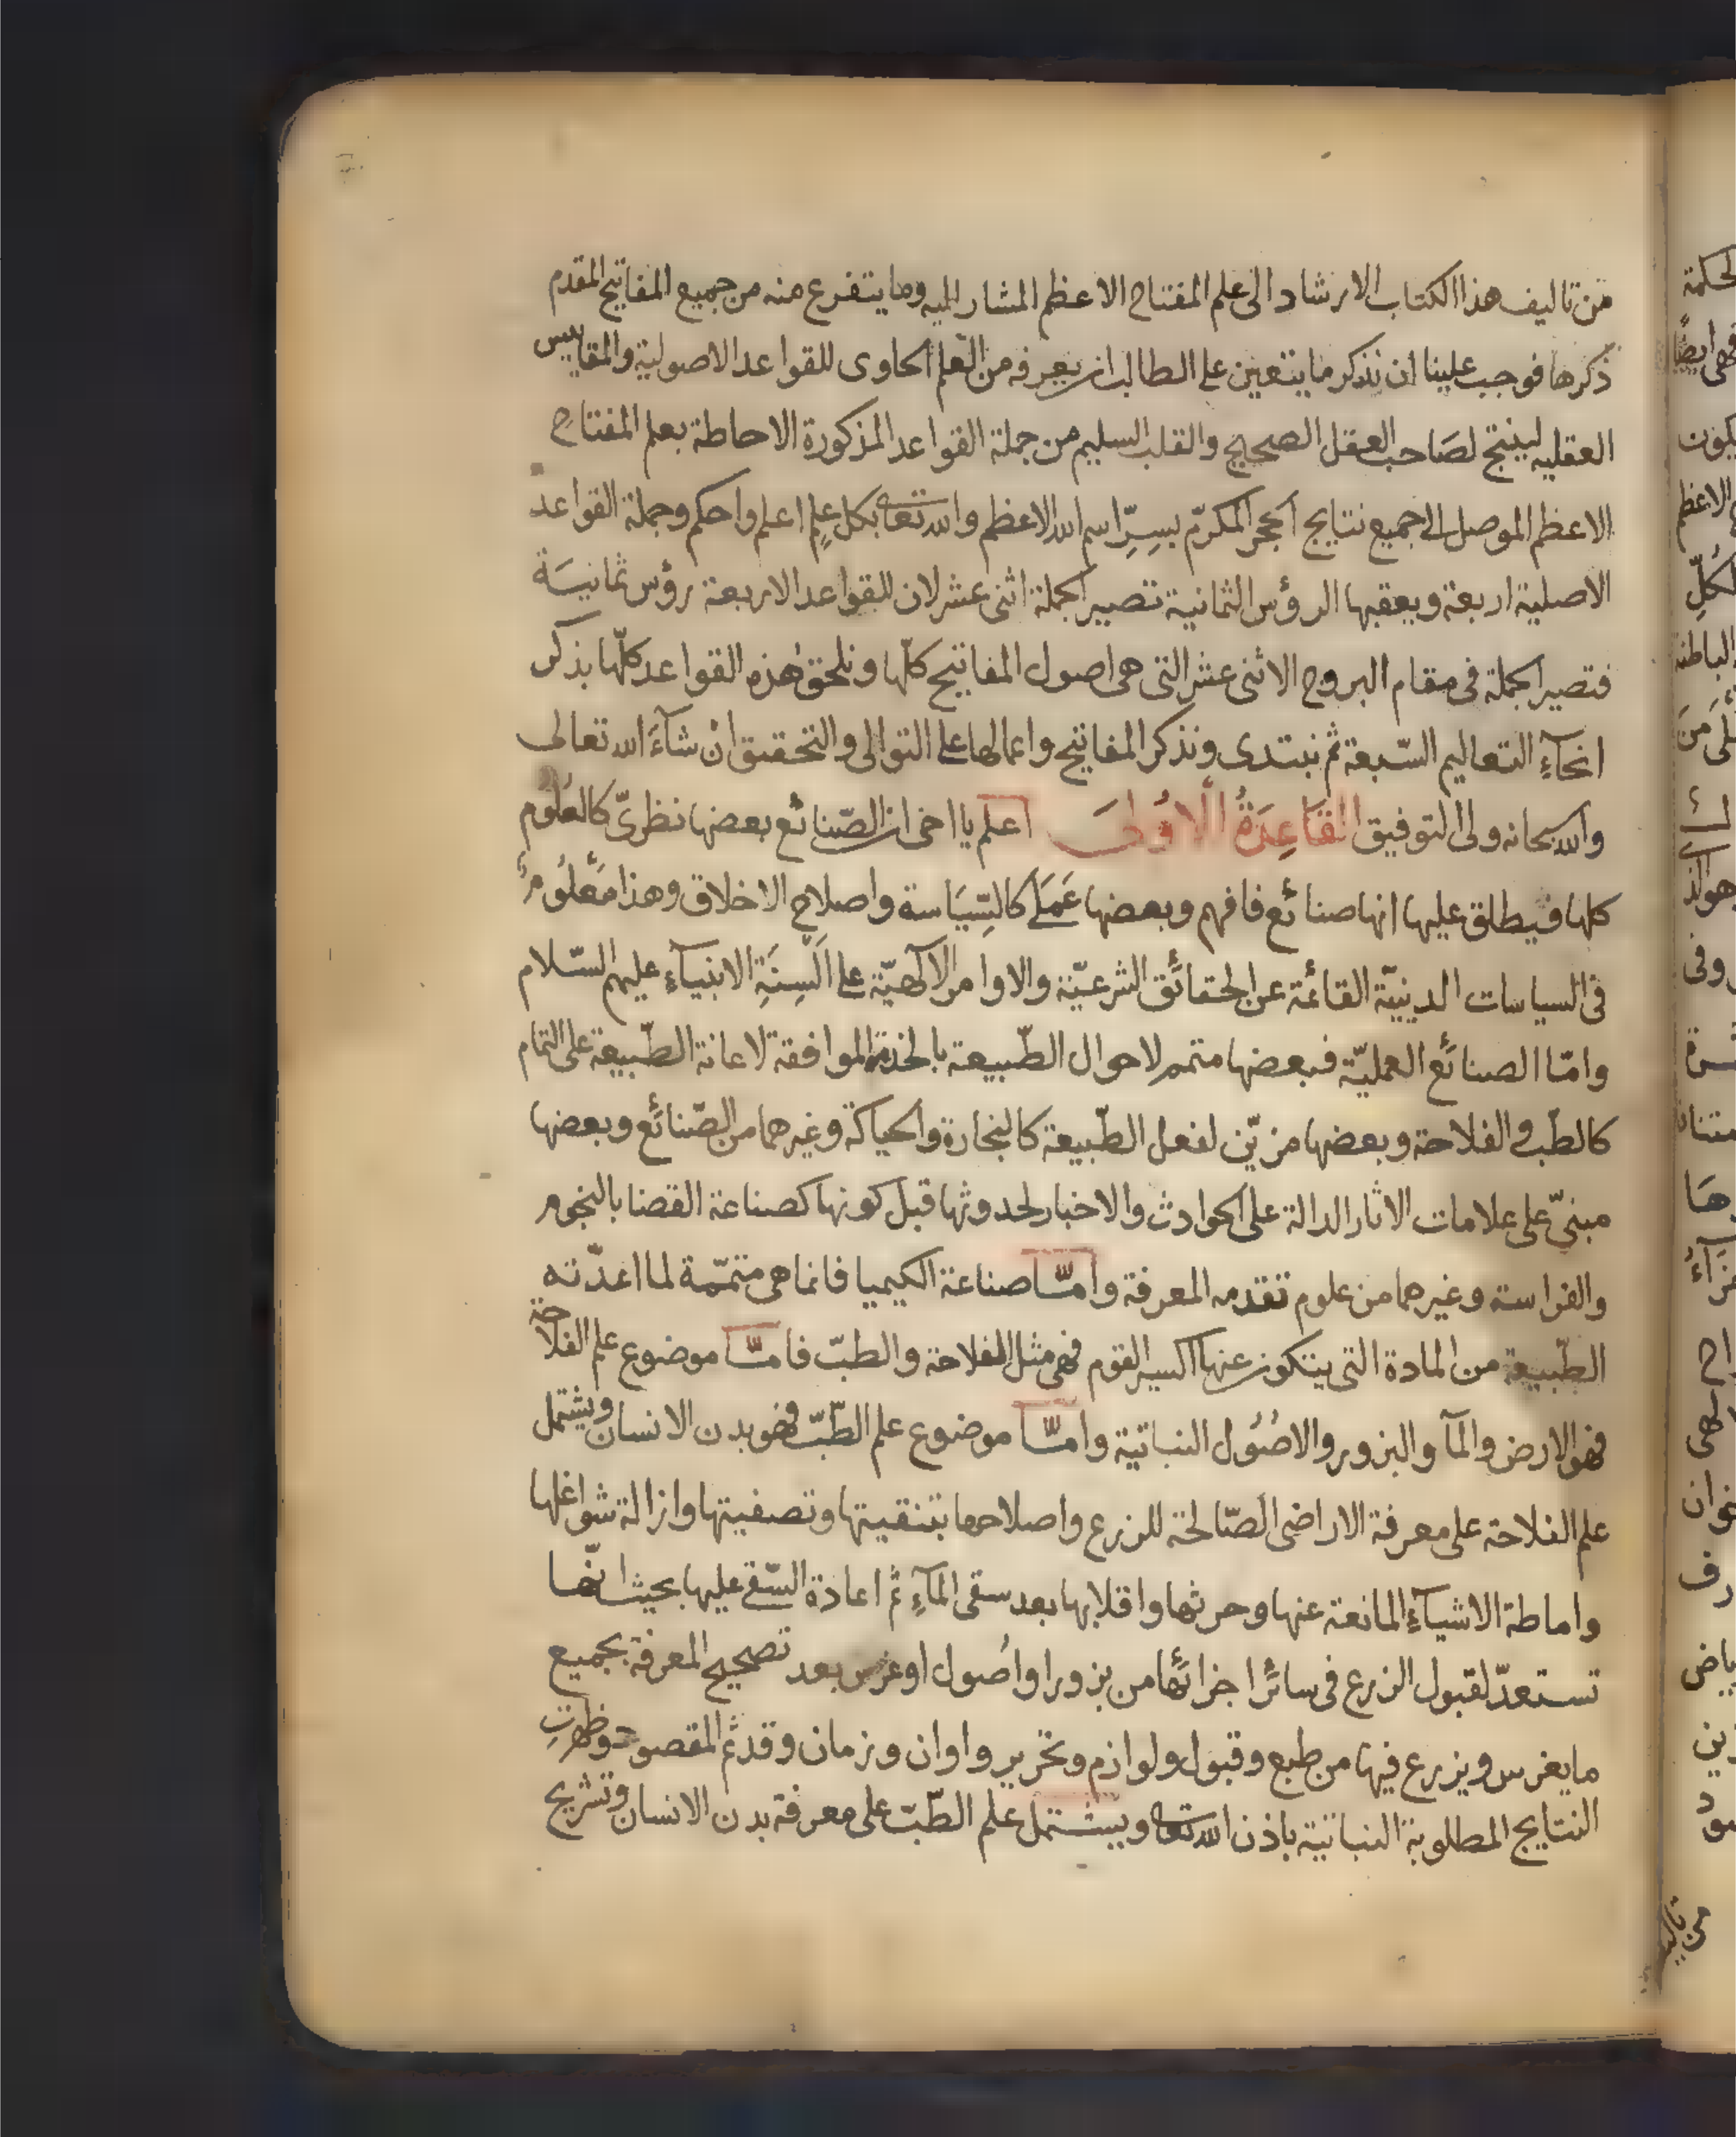 من تاليف هذا الكتاب الارشاد الى علم المفتاح الاعظم المشار اليه وما يتفرع منه من جميع المفاتيح المقدم
ذكرها فوجب علينا ان نذكر ما يتعين على الطالب ان يعرفه من العلم الحاوى للقواعد الاصولية والمقاييس
العقليه لينتج لصاحب العقل الصحيح والقلب السليم من جملة القواعد المذكورة الاحاطة بعلم المفتاح
الاعظم الموصل الى جميع نتايج الحجر المكرّم بسِرِّ اسم الله الاعظم والله تعالى بكل علمٍ اعلم واحكم وجملة القواعد
الاصلية اربعة ويعقبها الرؤس الثمانية تصير الجملة اثنى عشر لان للقواعد الاربعة رؤس ثمانيَة
فتصير الجملة فى مقام البروج الاثنى عشر التى هى اصول المفاتيح كلّها ونلحق هذه القواعد كلّها بذكر
انحآءِ التعاليم السّبعة ثم نبتدى ونذكر المفاتيح واعمالها على التوالى والتحقيق انْ شآءَ الله تعالى
والله سبحانه ولى التوفيق القَاعِدَةُ الْاُوْلىَ اعلم يا اخى ان الصّنائع بعضها نظرىّ كالعُلُوم
كلها فيطلق عليها انها صنائع فافهم وبعضها عَمَلى كالسِّيَاسة واصلاح الاخلاق وهذا مَعْلُومٌ
فى السياسات الدينيّة القائمة عن الحقائق الشرعيّة والاوامر الالهيّة على اَلْسِنَةِ الانبيآءِ عليهم السّلام
وامّا الصنائع العمليّة فبعضها متمم لاحوال الطّبيعة بالخدمة الموافقة لاعانة الطّبيعة على التمام
كالطّب والفلاحة وبعضها مزيّن لفعل الطّبيعة كالنجارة والحياكة وغيرهما من الصّنائع وبعضها
مبنىّ على علامات الاثار الدالة على الحوادث والاخبار لحدوثها قبل كونها كصناعة القضا بالنجوم
والفراسة وغيرهما من علوم تقدمه المعرفة وامّا صناعة الكيميا فانما هى متمّمة لما اعدّته
الطّبيعة من المادة التى يتكون عنها اكسير القوم فهى مثل الفلاحة والطبّ فامّا موضوع علم الفلاحة
فهو الارض والمآ والبزور والاصُول النباتية وامّا موضوع علم الطّبّ فهو بدن الانسان ويشتمل
علم الفلاحة على معرفة الاراضى الصّالحة للزرع واصلاحها بتنقيتها وتصفيتها وازالة شواغلها
واماطة الاشيآءِ المانعة عنها وحرثها واقلابها بعد سقى المآءِ ثم اعادة السّقى عليها بحيث انّها
تستعدّ لقبول الزرع فى سائر اجزائها من بزور او اصُول او غرس بعد تصحيح المعرفة بجميع
ما يغرس ويزرع فيها من طبع وقبول ولوازم وتحرير واوان وزمان وقد تم المقصود وظهرتِ
النتايج المطلوبة النباتية باذن الله تعالى ويشتمل علم الطّبّ على معرفة بدن الانسان وتشريح